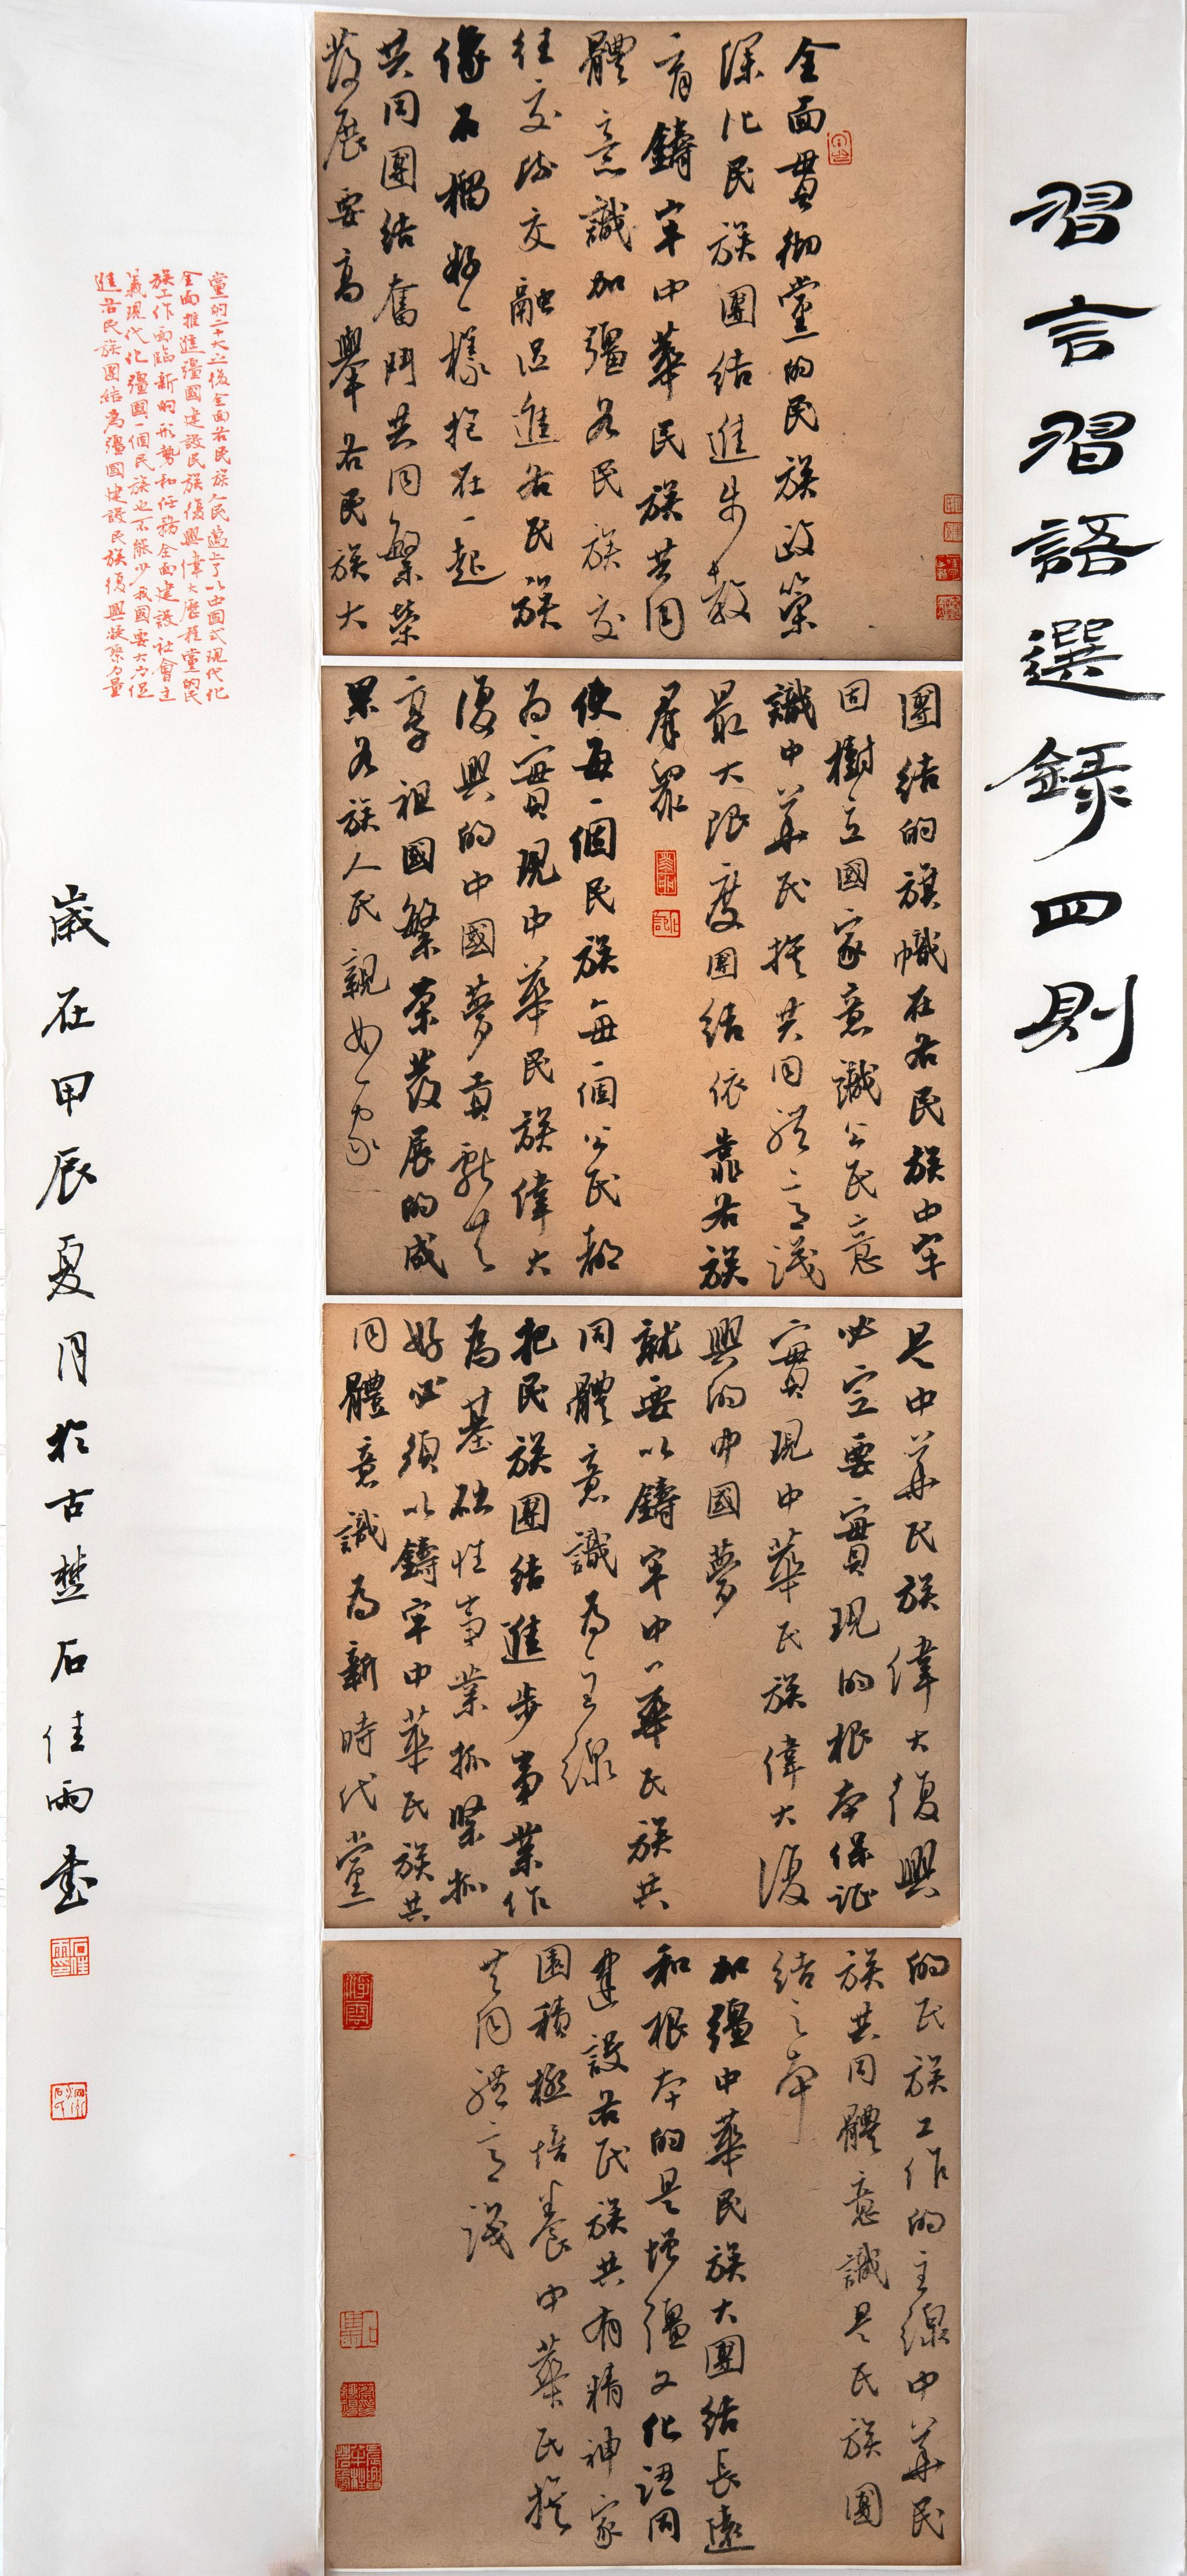 習言習語選錄四則
全面貫彻黨的民族政策
深化民族團结進步教
育鑄牢中華民族共同
體意識加彊各民族交
往交流交融促進各民族
像石榴籽一樣抱在一起
共同團结奮鬥共同繁荣
發展要高舉各民族大
團结的旗幟在各民族中牢
固樹立國家意識公民意
識中華民族共同體意識
最大限度團结依靠各族
群眾
使每一個民族每一個公民都
为實現中華民族偉大
復興的中國夢貢獻共
享祖國繁荣發展的成
果各族人民親如一家
是中華民族偉大復興
必定要實現的根本保証
實現中華民族偉大復
興的中國夢
就要以鑄牢中華民族共
同體意識为主線
把民族團结進步事業作
為基础性事業抓緊抓
好必須以鑄牢中華民族共
同體意識为新時代黨
的民族工作的主線中華民
族共同體意識是民族團
结之本
加彊中華民族大團结長遠
和根本的是增彊文化認同
建設各民族共有精神家
園積極培養中華民族
共同體意識
黨的二十大之後全面各民族人民邁上了以中國式現代化
全面推進彊國建設民族復興偉大歷程黨的民
族工作面臨新的形勢和任務全面建設社會主
義現代化彊國一個民族也不能少我國要大力促
進各民族團结為彊國建設民族復興凝聚力量
歲在甲辰夏月於古楚石佳雨書